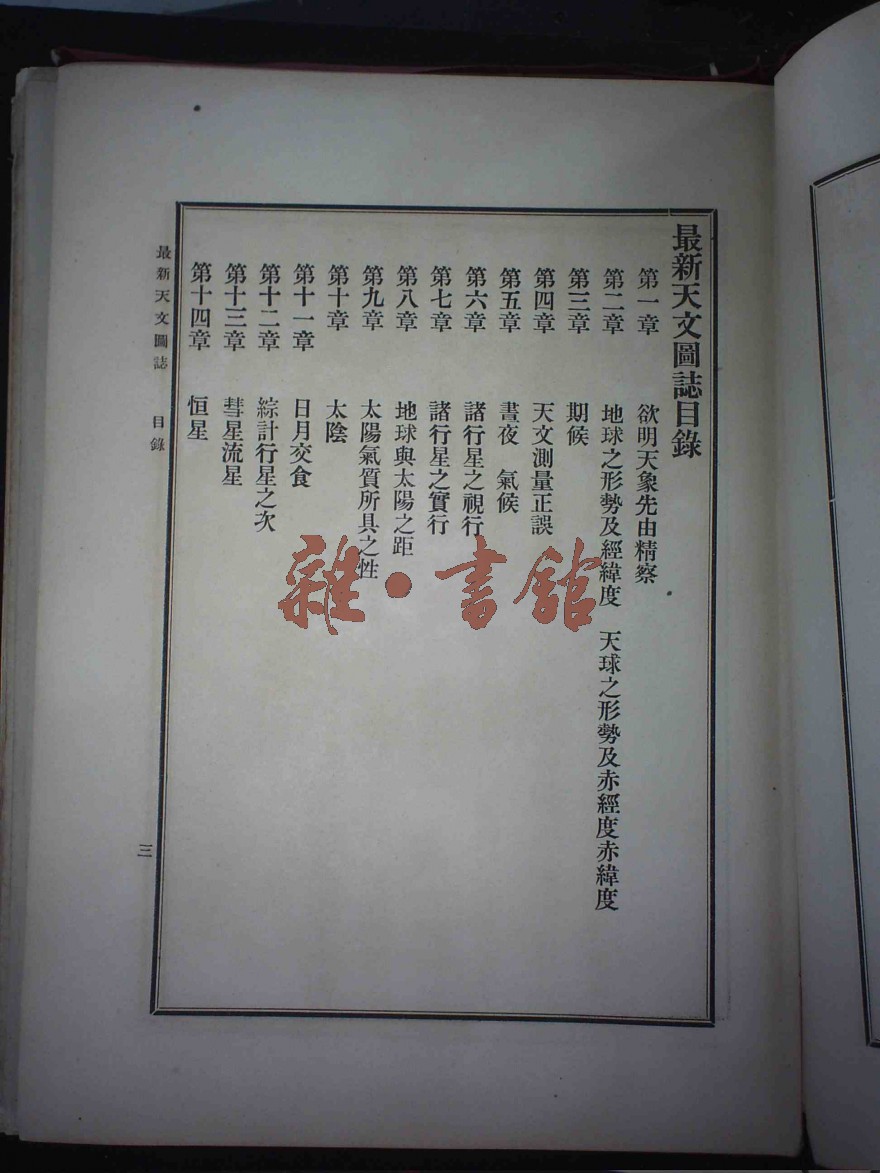 最新天文圖誌目錄
第一章 欲明天象先由精察
第二章 地球之形勢及經緯度 天球之形勢及赤經度赤緯度
第三章 期候
第四章 天文測量正誤
第五章 晝夜 氣候
第六章 諸行星之視行
第七章 諸行星之實行
第八章 地球與太陽之距
第九章 太陽氣質所具之性
第十章 太陰
第十一章 日月交食
第十二章 綜計行星之次
第十三章 彗星流星
第十四章 恒星
最新天文圖誌 目錄 三
雜·書館